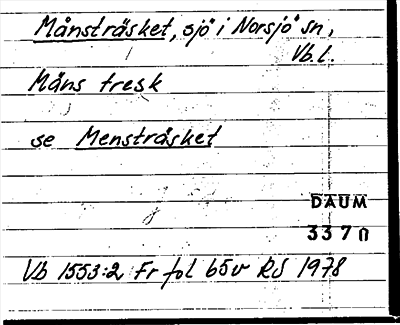 Månsträsket, sjö i Norsjö sn,
Vb.l.
Måns tresk
se Mensträsket
DAUM
3370
Vb 1553:2 Fr fol 65v RS 1978